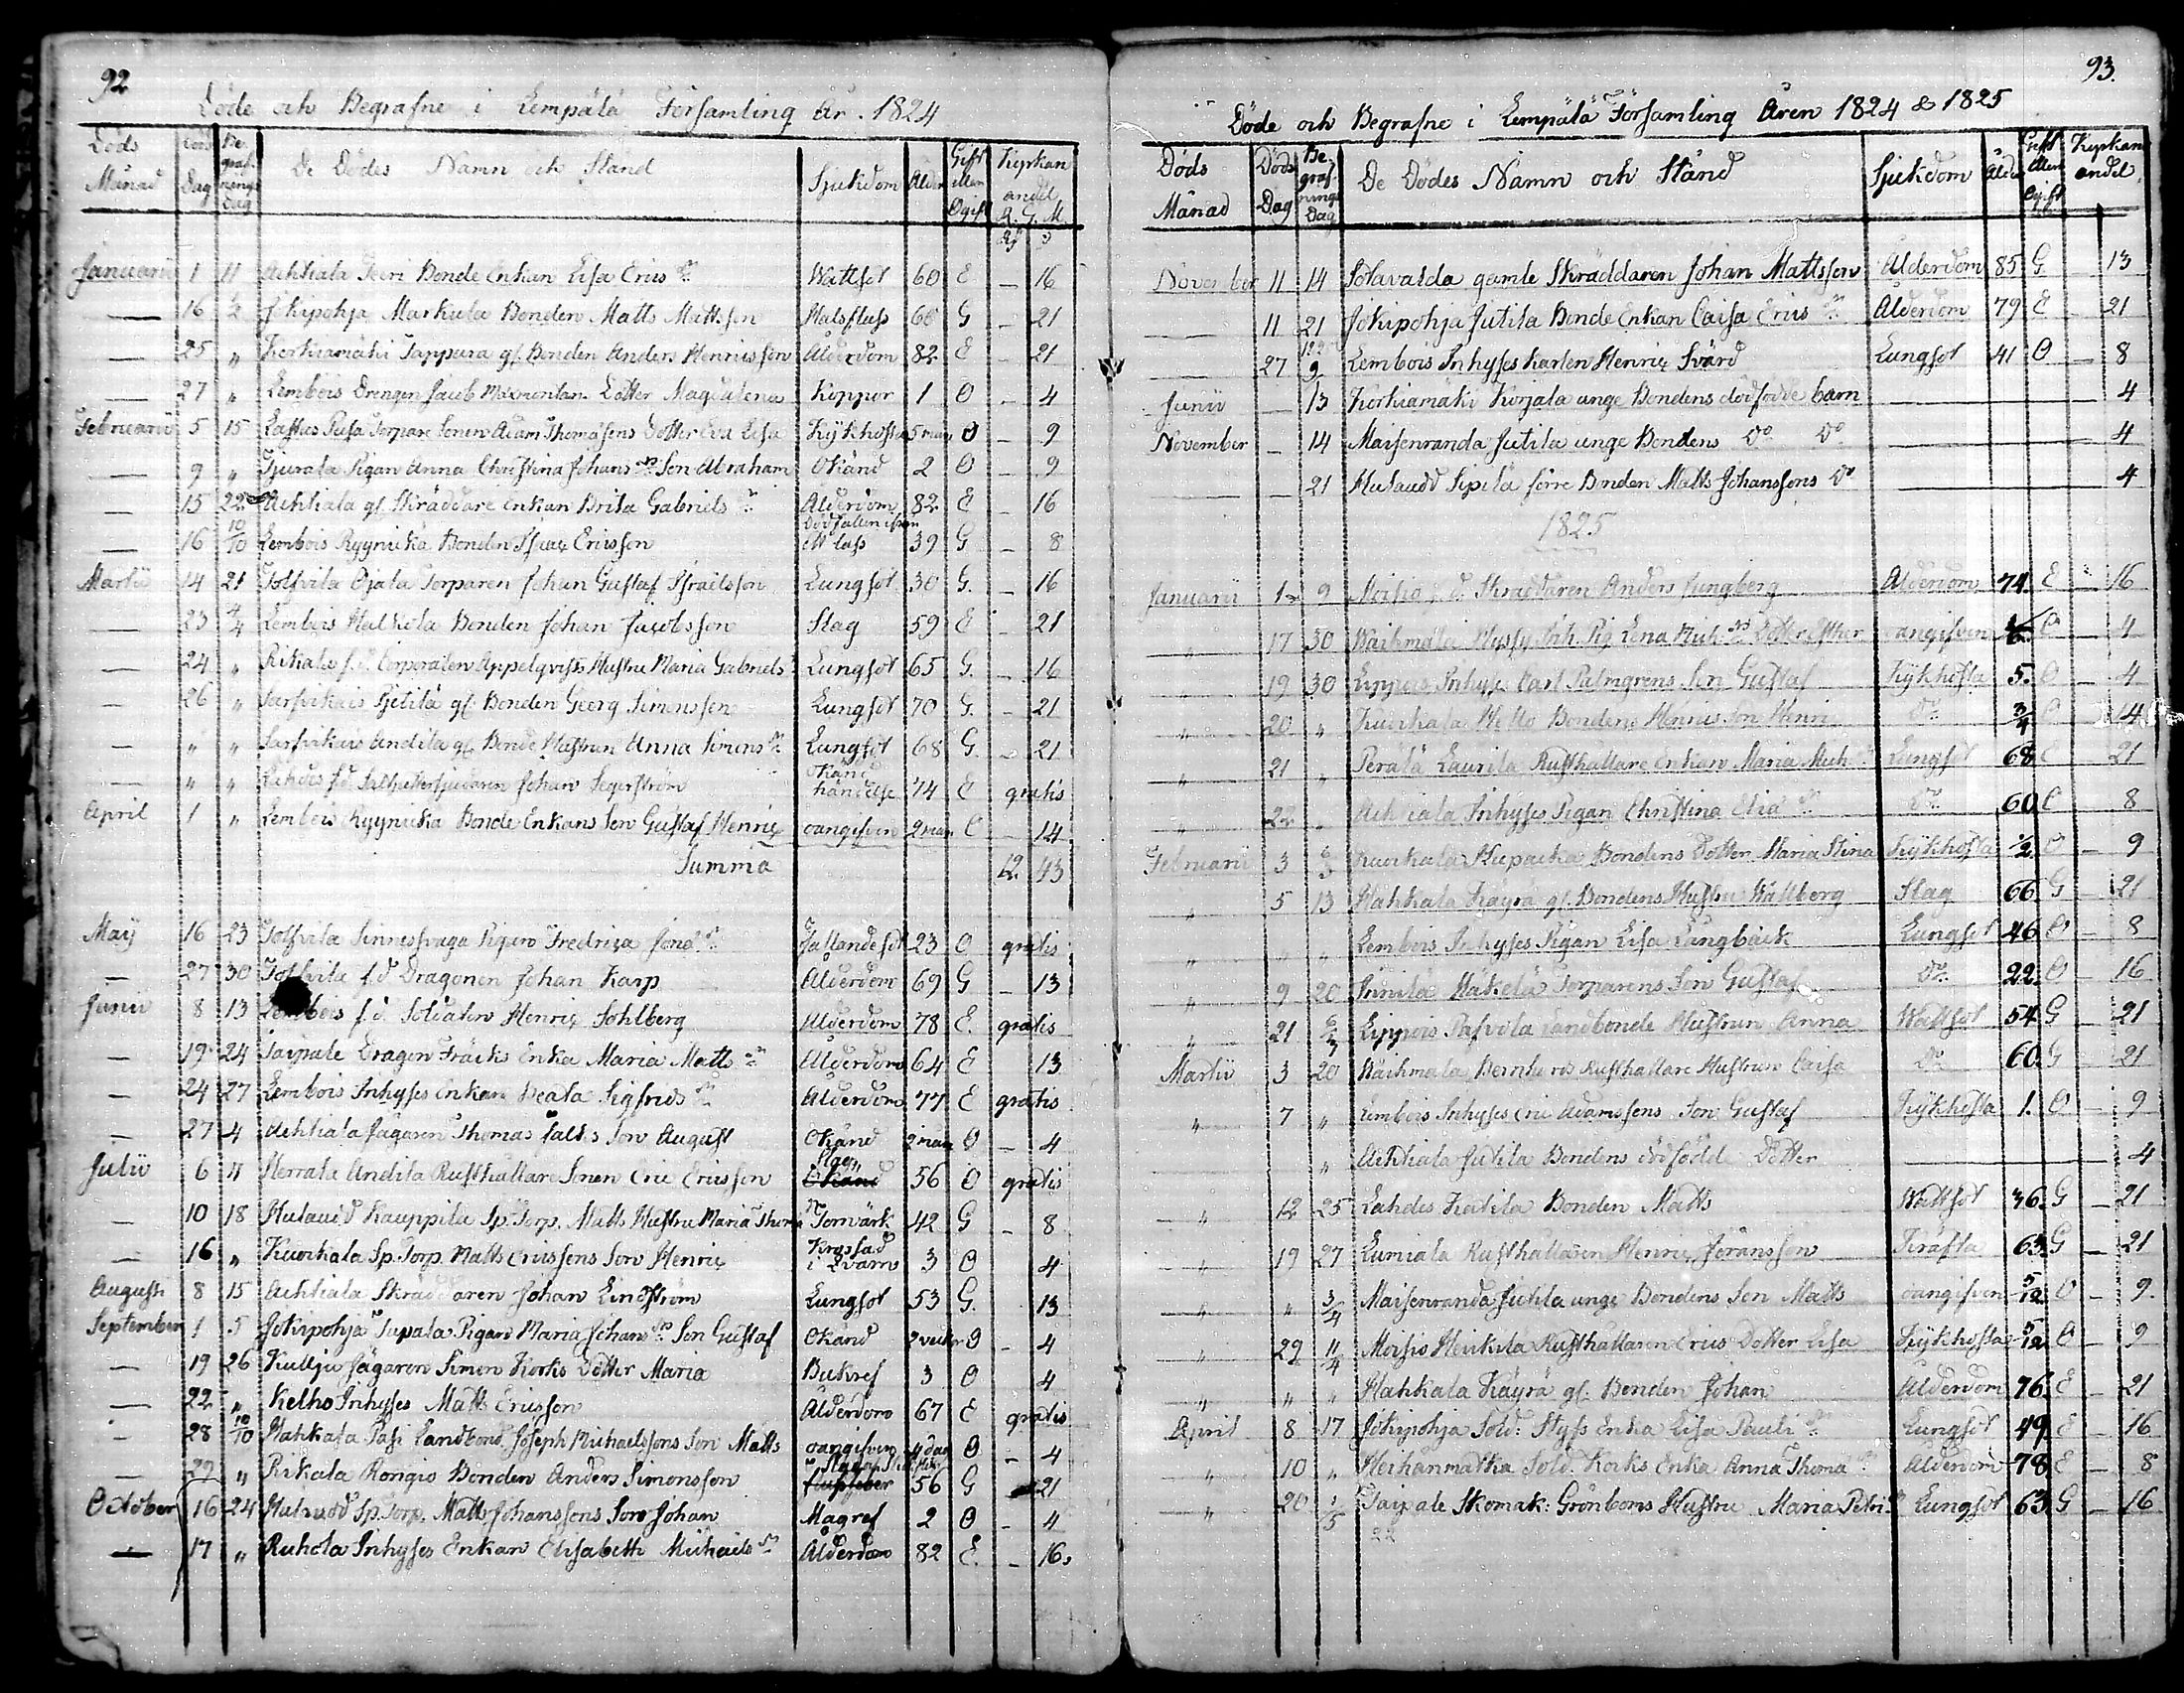 92
Döde och Begrafne i Lempälä Församling År. 1824
Döds Månad | Döds Dag | Begrafnings Dag | De Dödes Namn och Stånd | Sjukdom | Ålder | Gift eller Ogift | Kyrkans andel R. G. M.
Januarii 1 11 Ahtiala Bonde Enkan Lisa Erics dr. Wattsot 60 E – 16
— 16 1/2 Jokipohja Markula Bonden Matts Mattsson Halsfluss 60 G – 21
— 25 " Korkiamäki Tappura gl. Bonden Anders Henricsson Ålderdom 82 E – 21
— 27 " Lembois Drengen Jacob Dotter Magdalena Koppor 1 O – 4
Februarii 5 15 Torpare Sonen Adam Thomasons Dotter Eva Lisa Kikhosta 5 mån O – 9
— 9 " Pigan Anna Christina Johans dr. Son Abraham Okänd 2 O – 9
— 15 22 Ahtiala gl. Skräddare Enkan Brita Gabriels dr. Ålderdom 82 E – 16
— 16 10/10 Lembois Ryynikä Bonden Isac Ericsson Död fallen ifrån ett lass 39 G – 8
Martii 14 21 Tolfvila Ojala Torparen Johan Gustaf Israelsson Lungsot 30 G. – 16
— 23 4/4 Lembois Halkola Bonden Johan Jacobsson Slag 59 E – 21
— 24 " Rikala f.d. Corporalen Appelqvists Hustru Maria Gabriels Lungsot 65 G. – 16
— 26 " Sarfvikais Pjetilä gl. Bonden Georg Simonsson Lungsot 70 G. – 21
— " " Sarfvikais Andila gl. Bonde Hustrun Anna Simons dr. Lungsot 68 G. – 21
— " " Lahdes f.d. Johan Segerström Okänd händelse 74 E gratis
April 1 " Lembois Ryynikä Bonde Enkans Son Gustaf Henric oangifven 2 mån O – 14
Summa 12 43
Maij 16 23 Tolfvila Pigan Fredrica Fallandesot 23 O gratis
— 27 30 Tolfvila f.d. Dragonen Johan Karp Ålderdom 69 G – 13
Junii 8 13 Lembois f.d. Soldaten Henric Sohlberg Ålderdom 78 E. gratis
— 19 24 Taipale Dragon Fräcks Enka Maria Matts dr. Ålderdom 64 E 13
— 24 27 Lembois Inhyses Enkan Beata Sigfrids dr. Ålderdom 77 E gratis
— 27 4 Ahtiala Jägaren Thomas Falks Son August Okänd 2 mån O – 4
Julii 6 11 Herrala Andila Rusthållare Sonen Eric Ericsson Slag Okänd 56 O gratis
— 10 18 Hulaud Kauppila Sp. Torp. Matts Hustru Maria Thom Torrvärk 42 G – 8
— 16 " Kuorkala Sp. Torp. Matts Ericssons Son Henric Krossad i Qvarn 3 O 4
Augusti 8 15 Ahtiala Skräddaren Johan Lindström Lungsot 53 G. 13
September 1 5 Jokipohja Tupala Pigan Maria Johans dr. Son Gustaf Okänd 2 veckor O – 4
— 19 26 Kulju Jägaren Simon Korks Dotter Maria Bukref 3 O 4
— 22 " Kelho Inhyses Matts Ericsson Ålderdom 67 E gratis
— 28 10/10 Hahkala Pasi Landbond. Joseph Michaelssons Son Matts oangifven 4 dag O – 4
— 29 " Rikala Rongio Bonden Anders Simonsson 56 G – 21
October 16 24 Hulaudd Sp. Torp. Matts Johanssons Son Johan Magref 2 O – 4
— 17 " Kuhola Inhyses Enkan Elisabeth Michaels dr. Ålderdom 82 E. – 16.
93.
Döde och Begrafne i Lempälä Församling Åren 1824 & 1825
Döds Månad | Döds Dag | Begrafnings Dag | De Dödes Namn och Stånd | Sjukdom | Ålder | Gift eller Ogift | Kyrkans andel
November 11 14 Sotavalda gamle Skräddaren Johan Mattsson Ålderdom 85 G 13
— 11 21 Jokipohja Jutila Bonde Enkan Caisa Erics dr. Ålderdom 79 E – 21
— 27 Lembois Inhyses karlen Henric Svärd Lungsot 41 O – 8
Junii — 13 Korkiamäki Korjala unge Bondens dödfödde barn 4
November – 14 Maisenranda Jutila unge Bondens Do Do 4
— – 21 Hulaudd Sipilä förre Bonden Matts Johanssons Do 4
1825
Januarii 1 9 Moisio f.d. Skräddaren Anders Ljungberg Ålderdom 74. E – 16
" 17 30 Inh. Pig. Lena Mich. dr. Dotter Esther oangifven O – 4
" 19 30 Lippois Inhyses Carl Palmgrens Son Gustaf Kikhosta 5. O – 4
" 20 " Kuorkala Bonden Henrics Son Henric Do 3/4 O 14
" 21 " Perälä Laurila Rusthållare Enkan Maria Mich. dr. Lungsot 68 E 21
" 22 " Ahtiala Inhyses Pigan Christina Elia dr. Do 60. O 8
Februarii 3 6/3 Kuorkala Bondens Dotter Maria Stina Kikhosta 1/2 O – 9
" 5 13 Hahkala Käyrä gl. Bondens Hustru Wallberg Slag 66 G – 21
" " " Lembois Inhyses Pigan Lisa Långbäck Lungsot 46 O – 8
" 9 20 Innilä Mäkelä Torparens Son Gustaf Do 22. O – 16
" 21 6/3 Lippois Pasvola Landbonde Hustrun Anna Wattsot 54 G – 21
Martii 3 20 Wäihmälä Bernhards Rusthållare Hustrun Caisa Do 60. G – 21
" 7 " Lembois Inhyses Eric Adamssons Son Gustaf Kikhosta 1. O – 9
" Ahtiala Jutila Bondens dödfödde Dotter 4
" 12 25 Lahdes Katila Bonden Matts Wattsot 36. G – 21
" 19 27 Lumiala Rusthållaren Henric Göransson Kräfta 63. G – 21
" " 3/4 Maisenranda Jutila unge Bondens Son Matts oangifven 5/12 O – 9.
" 29 11/4 Moisio Heikila Rusthållaren Erics Dotter Lisa Kikhosta 5/12 O – 9
" " " Hahkala Käyrä gl. Bonden Johan Ålderdom 76. E – 21
April 8 17 Jokipohja Sold: Styfs Enka Lisa Pauli dr. Lungsot 49. E – 16
" 10 " Höihänmatka Sold. Korks Enka Anna Thoma dr. Ålderdom 78. E – 8
" 20 1/5 Taipale Skomak: Grönboms Hustru Maria Petri dr. Lungsot 63. G – 16
22